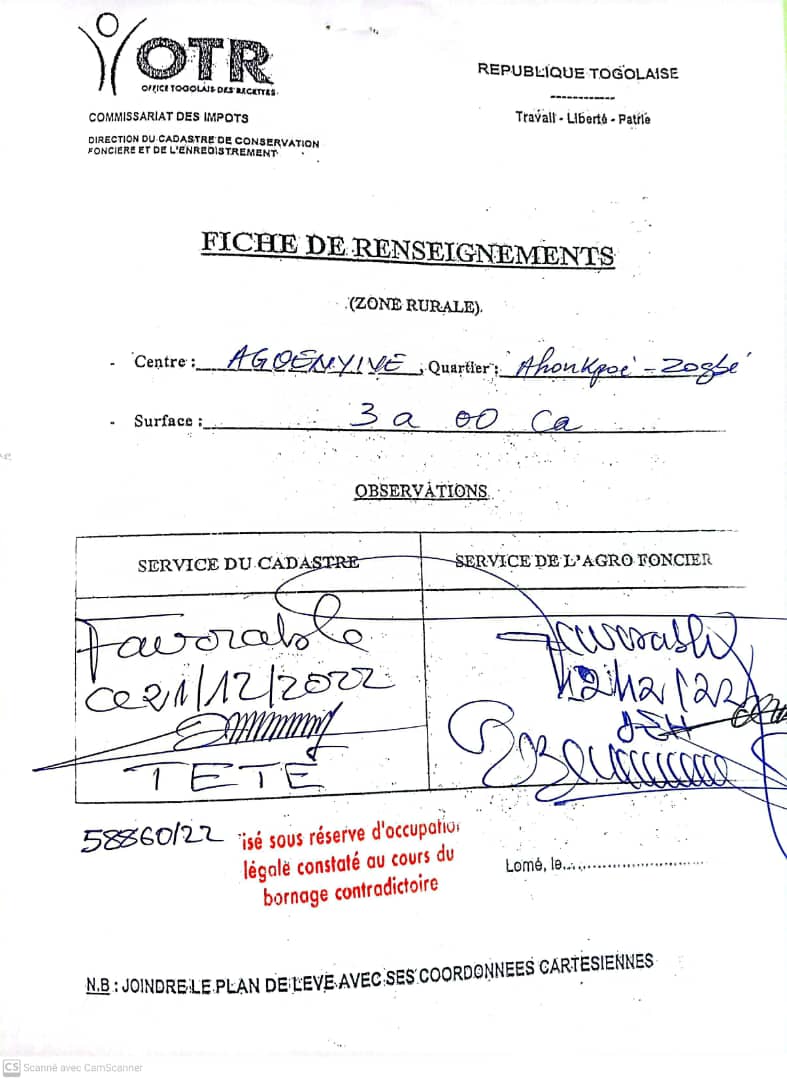 OTR
OFFICE TOGOLAIS DES RECETTES
COMMISSARIAT DES IMPOTS
DIRECTION DU CADASTRE DE CONSERVATION
FONCIERE ET DE L'ENREGISTREMENT
REPUBLIQUE TOGOLAISE
------------
Travail - Liberté - Patrie
FICHE DE RENSEIGNEMENTS
(ZONE RURALE).
- Centre : AGOENYIVE, Quartier : Ahonkpoé - Zogbé
- Surface : 3 a 00 Ca
OBSERVATIONS
SERVICE DU CADASTRE
SERVICE DE L'AGRO FONCIER
Favorable
ce 21/12/2022
TETE
58860/22
isé sous réserve d'occupation
légale constaté au cours du
bornage contradictoire
Lomé, le
N.B : JOINDRE LE PLAN DE LEVE AVEC SES COORDONNEES CARTESIENNES
CS Scanné avec CamScanner